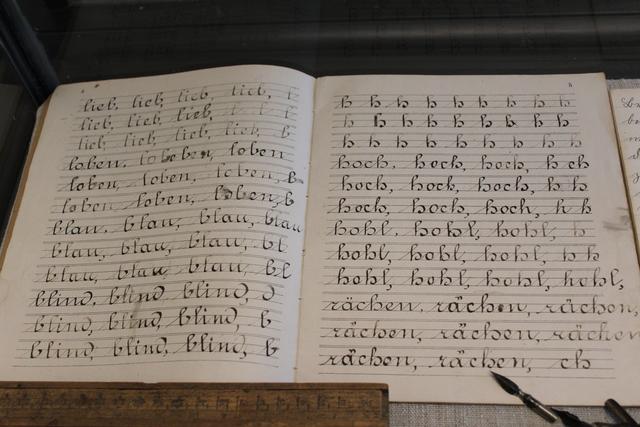 lieb, lieb, lieb, lieb, l
lieb, lieb, lieb
lieb, lieb, lieb, lieb, b
loben, loben, loben
loben, loben, loben, b
loben, loben, loben, b
blau, blau, blau, blau
blau, blau, blau, bl
blau, blau, blau, bl
blind, blind, blind, d
blind, blind, blind, b
blind, blind, blind, b
h h h h h h h h h
h h h h h h h h h
h h h h h h h h h
hoch, hoch, hoch, h ch
hoch, hoch, hoch, h h
hoch, hoch, hoch, h h
hohl, hohl, hohl, h
hohl, hohl, hohl, h h
hohl, hohl, hohl, hohl,
rächen, rächen, rächen,
rächen, rächen, rächen
rächen, rächen, ch